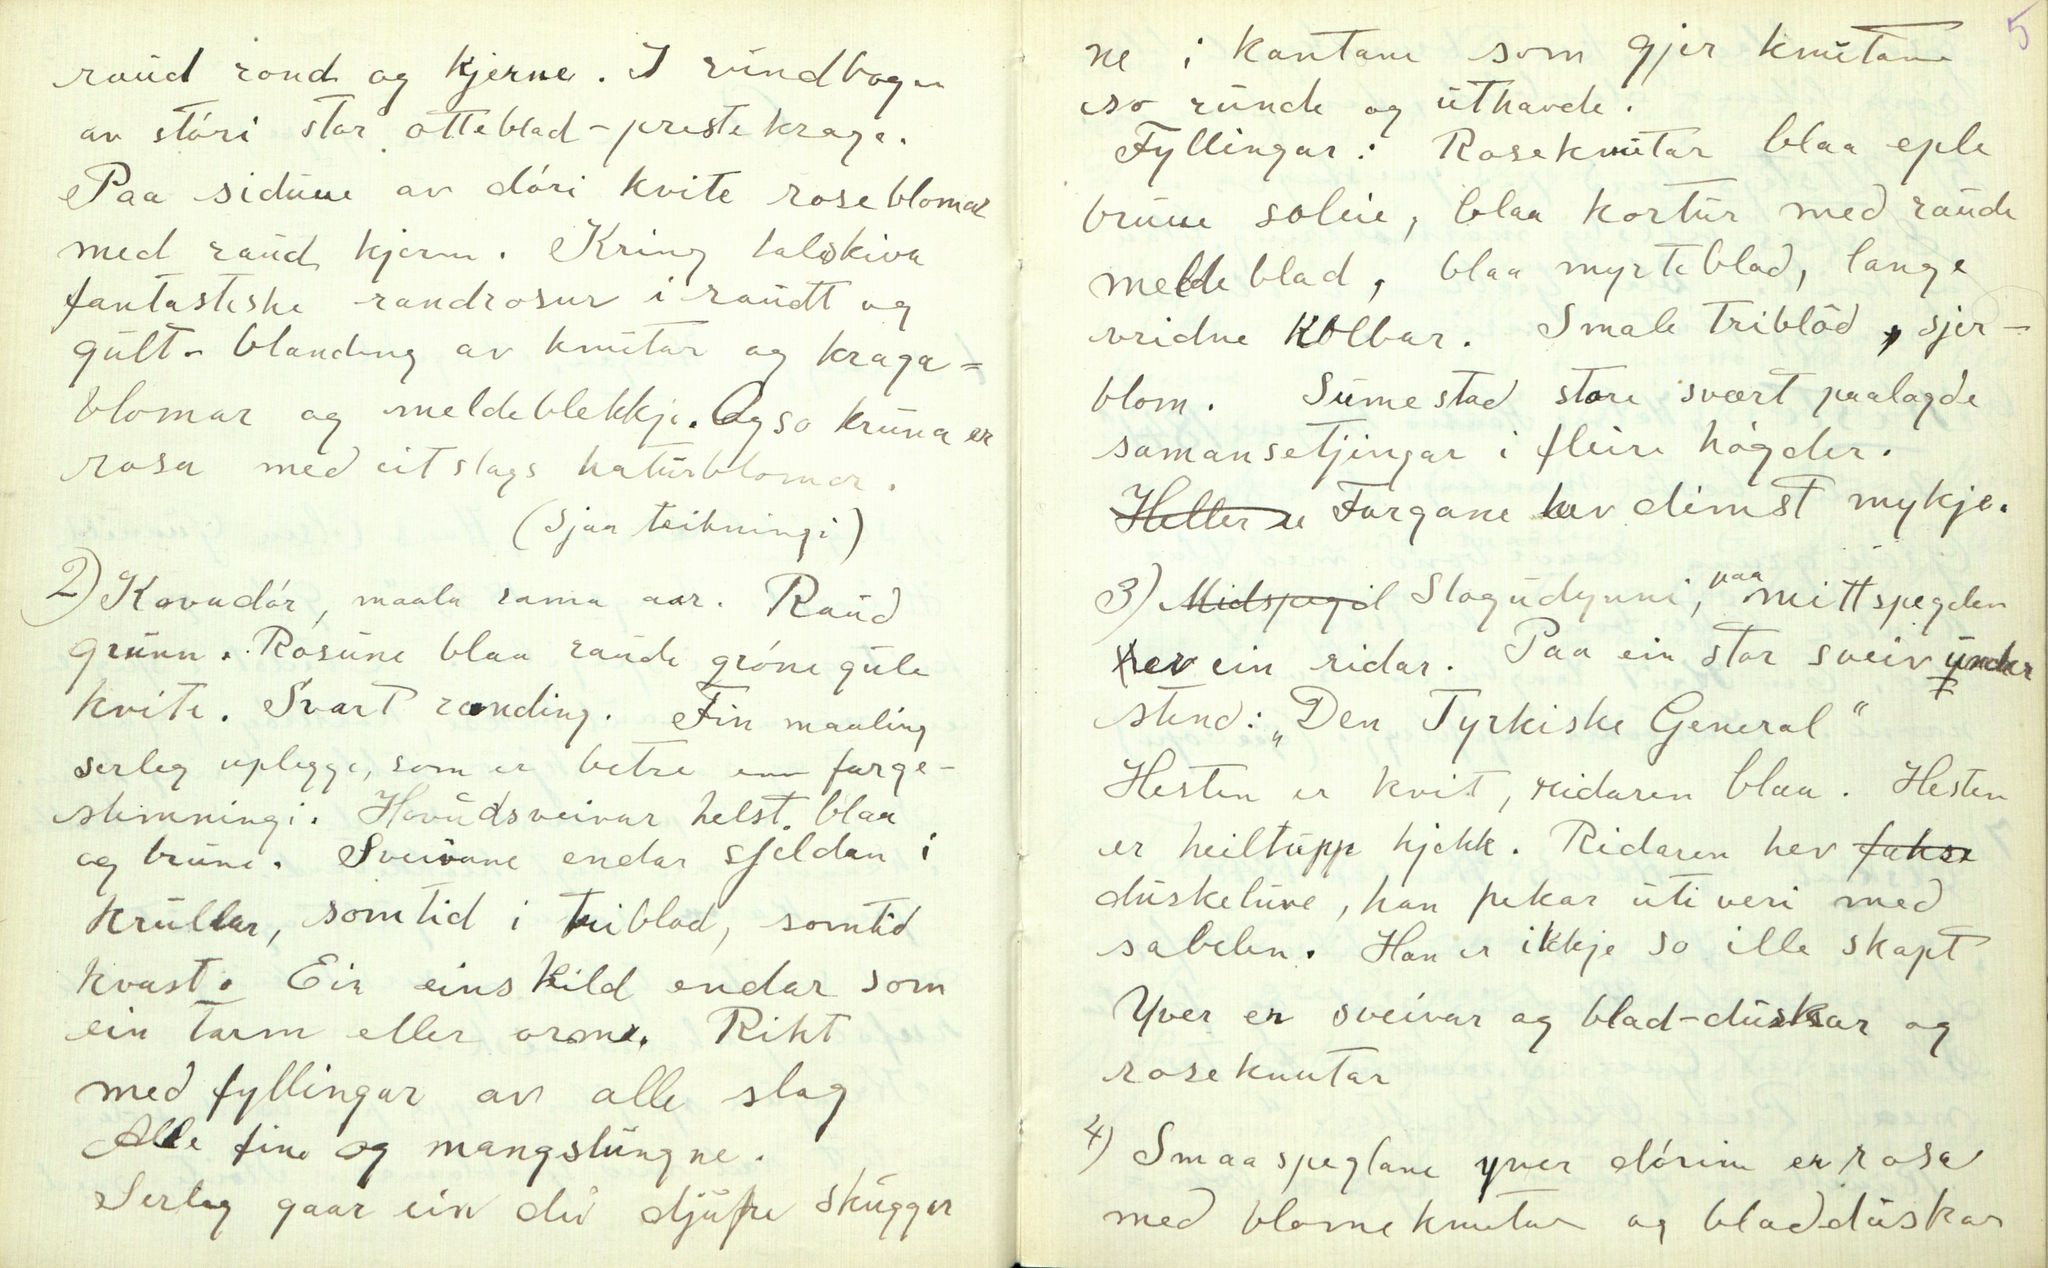 raud rond og kjerne. I rundbogen
av stóri stor otteblad-prestekrage.
Paa sidune av dóri kvite roseblomar
med raud kjerne. Kring talskiva
fantastiske randrosur i raudt og
gult - blanding av knutar og kraga=
blomar og meldeblekkje. Ogso kruna er
rosa med eit slags naturblomar.
(Sjaa teikningi)
2) Kovadór, maala sama aar. Raud
grunn. Rosune blaa raude gróne gule
kvite. Svart ronding. Fin maaling
serleg uplegge, som er betre enn farge-
stemningi. Hovudsveivar helst blaa
og brune. Sveivane endar sjeldan i
krullar, somtid i triblad, somtid
kvast. Ein einskild endar som
ein tarm eller orme. Rikt
med fyllingar av alle slag
Alle fine og mangslungne.
Serleg gaar ein div djupe skuggar
5
ne i kantane som gjer knutane
so runde og uthavde.
Fyllingar: Roseknutar blaa eple
brune soleie, blaa kortur med raude
meldeblad, blaa myrteblad, lange
vridne kolbar. Smale triblod, sjer-
blom. Sumestad store svært paalagde
samansetjingar i fleire hógder.
Heller e Fargane hev dimst mykje.
3) Midspegil Slagudynni, paa mittspeglen
her ein ridar. Paa ein stor sveiv under
stend: „Den Tyrkiske General"
Hesten er kvit, ridaren blaa. Hesten
er heiltupp kjekk. Ridaren hev fakse
duskeluve, han pekar uti veri med
sabelen. Han er ikkje so ille skapt
Yver er sveivar og blad-duskar og
roseknutar
4) Smaaspeglane yver dórine er rosa
med blomeknutar og bladduskar